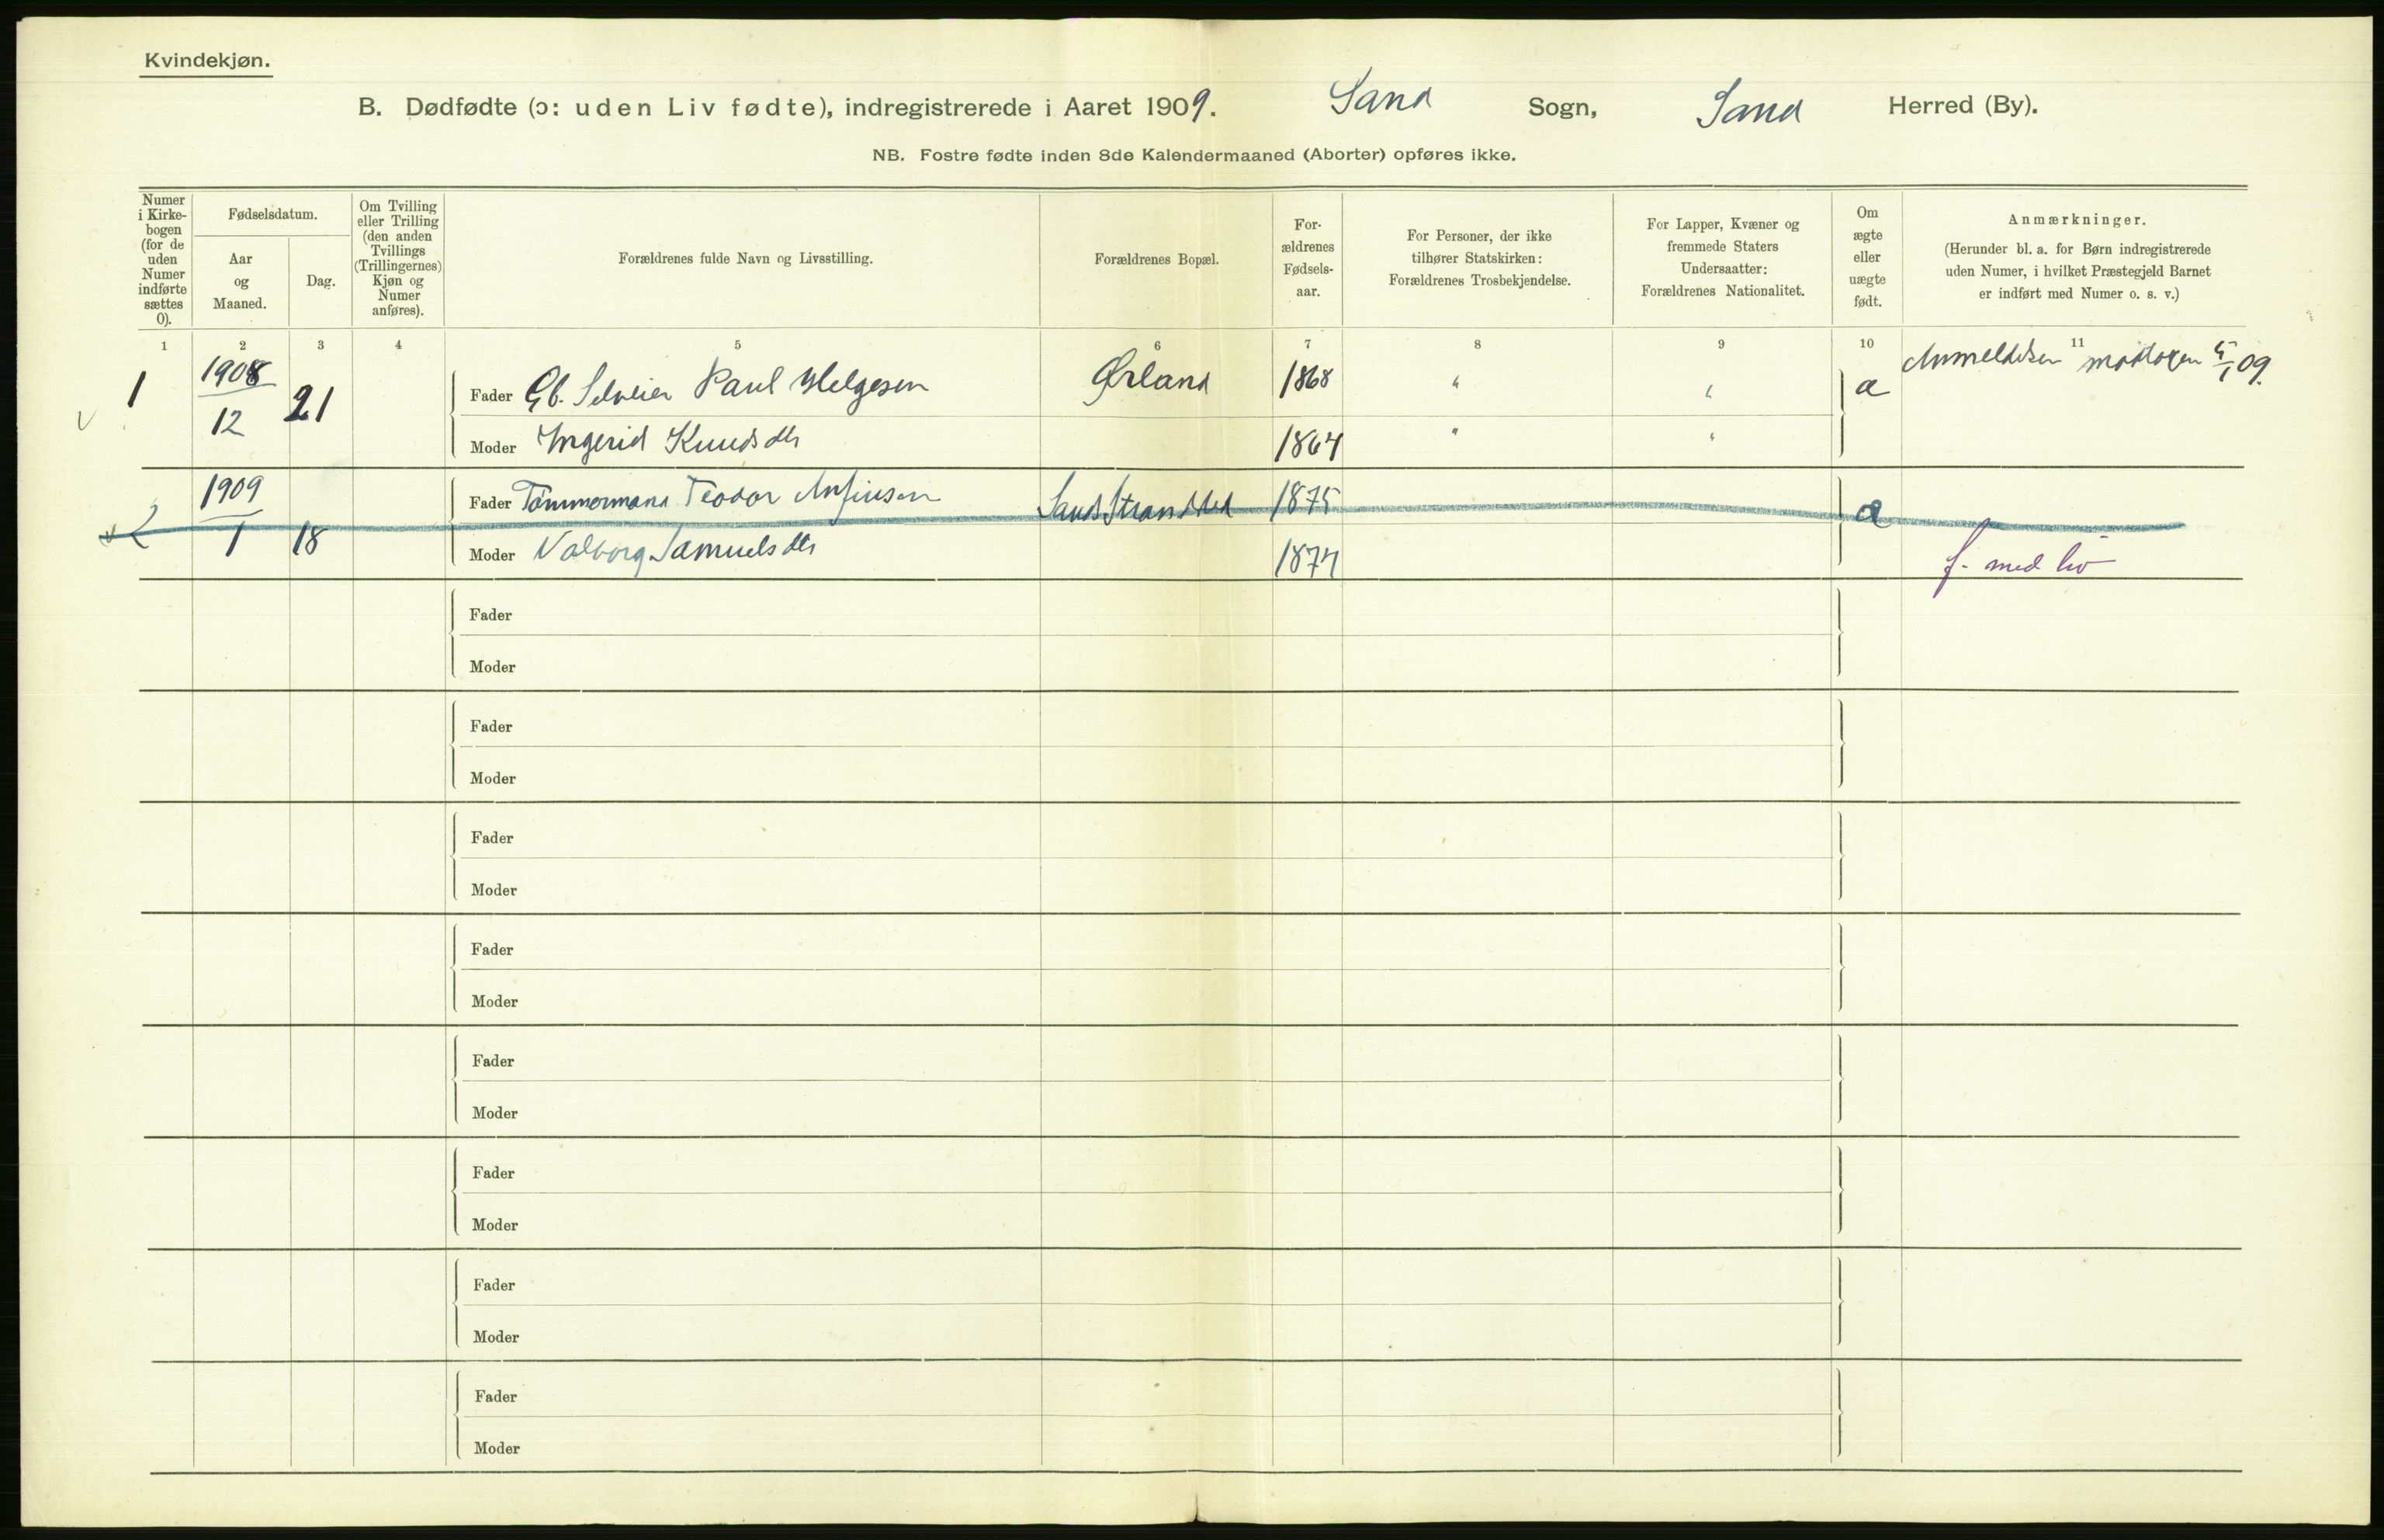 Kvindekjøn.
B. Dødfødte (ɔ: uden Liv fødte), indregistrerede i Aaret 1909. Sand Sogn, Sand Herred (By).
NB. Fostre fødte inden 8de Kalendermaaned (Aborter) opføres ikke.
Numer i Kirke-bogen (for de uden Numer indførte sættes 0).
Fødselsdatum.
Aar og Maaned.
Dag.
Om Tvilling eller Trilling (den anden Tvillings (Trillingernes) Kjøn og Numer anføres).
Forældrenes fulde Navn og Livsstilling.
Forældrenes Bopæl.
For-ældrenes Fødsels-aar.
For Personer, der ikke tilhører Statskirken: Forældrenes Trosbekjendelse.
For Lapper, Kvæner og fremmede Staters Undersaatter: Forældrenes Nationalitet.
Om ægte eller uægte født.
Anmærkninger.
(Herunder bl. a. for Børn indregistrerede uden Numer, i hvilket Præstegjeld Barnet er indført med Numer o. s. v.)
1 2 3 4 5 6 7 8 9 10 11
1 1908 12 21 Fader Gb. Selveier Paul Helgesen Ørland 1868 " " a Anmeldelsen modtagen 5/1 09.
Moder Ingerid Knudsdtr 1864 " "
2 1909 1 18 Fader Tømmermand Teodor Anfinsen Sands Strandsted 1875 a
Moder Valborg Samuelsdtr 1874 f. med liv
Fader
Moder
Fader
Moder
Fader
Moder
Fader
Moder
Fader
Moder
Fader
Moder
Fader
Moder
Fader
Moder